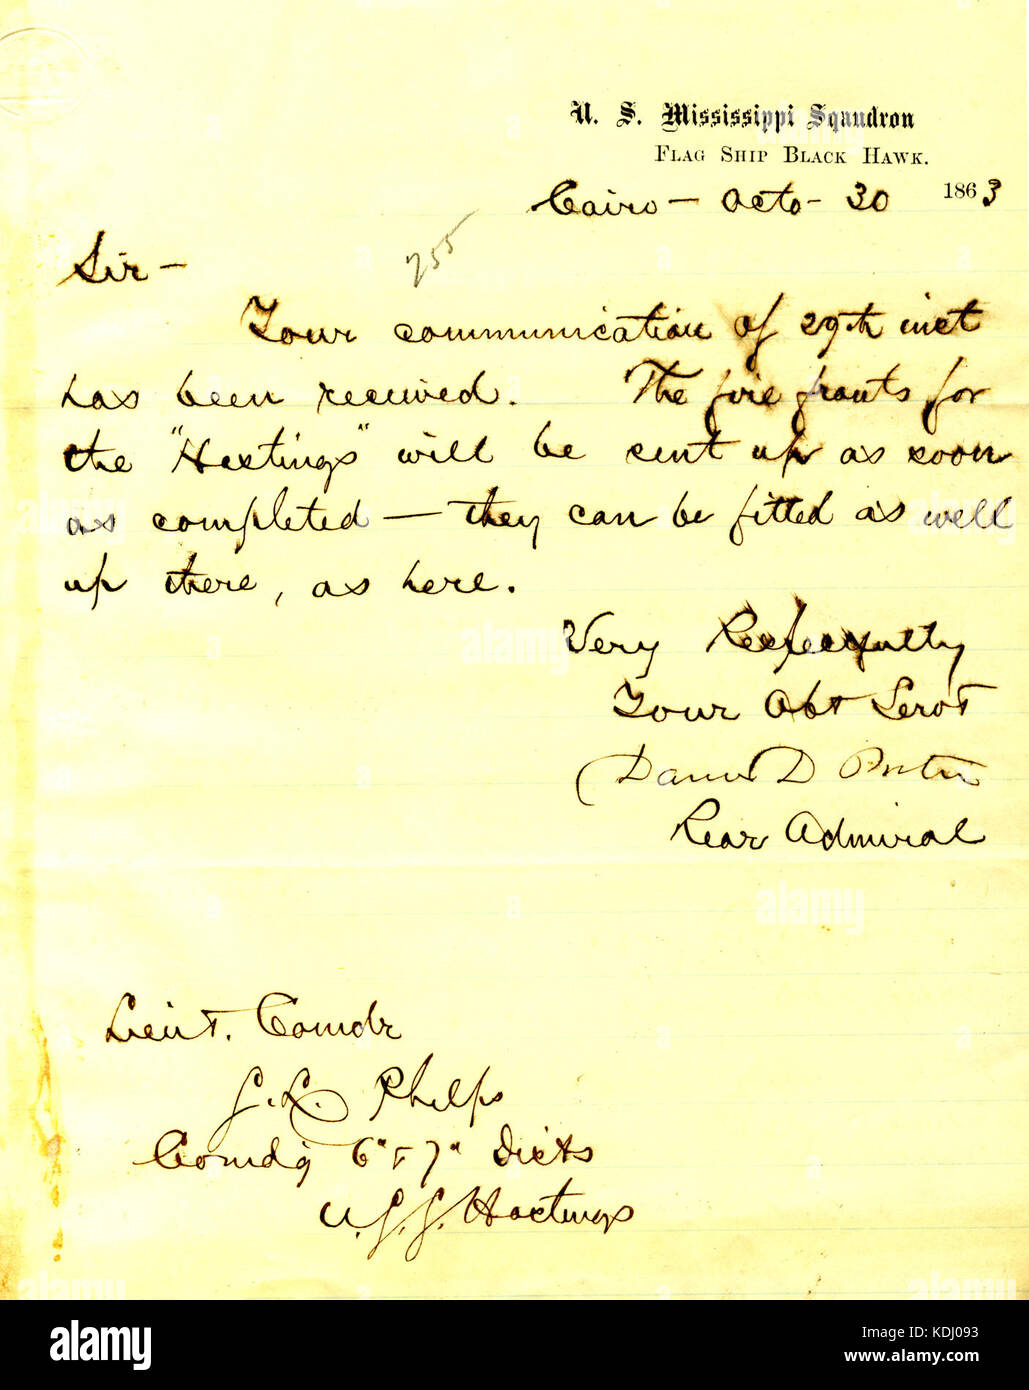 U. S. Mississippi Sqaudron
FLAG SHIP BLACK HAWK.
Cairo - Octo - 30 1863
255
Sir -
Your communication of 29th inst
has been received. The fire fronts for
the "Hastings" will be sent up as soon
as completed — they can be fitted as well
up there, as here.
Very Respectfully
Your Obt Servt
David D Porter
Rear Admiral
Lieut. Comdr
S. L. Phelps
Comdg 6" & 7" Dists
U.S.S. Hastings
alamy
Image ID: KDJ093
www.alamy.com